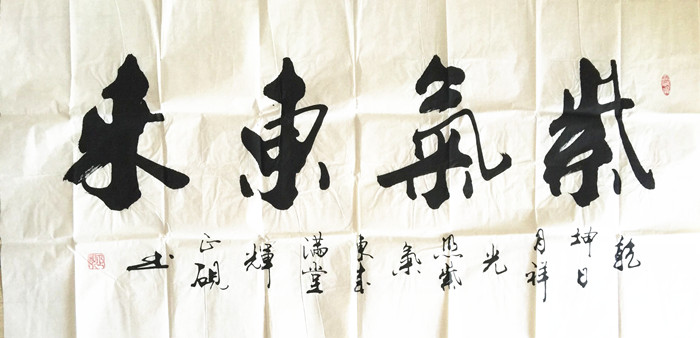 紫氣東来
乾
坤日
月祥
光
照紫
氣
東来
满堂
輝
正硯
书